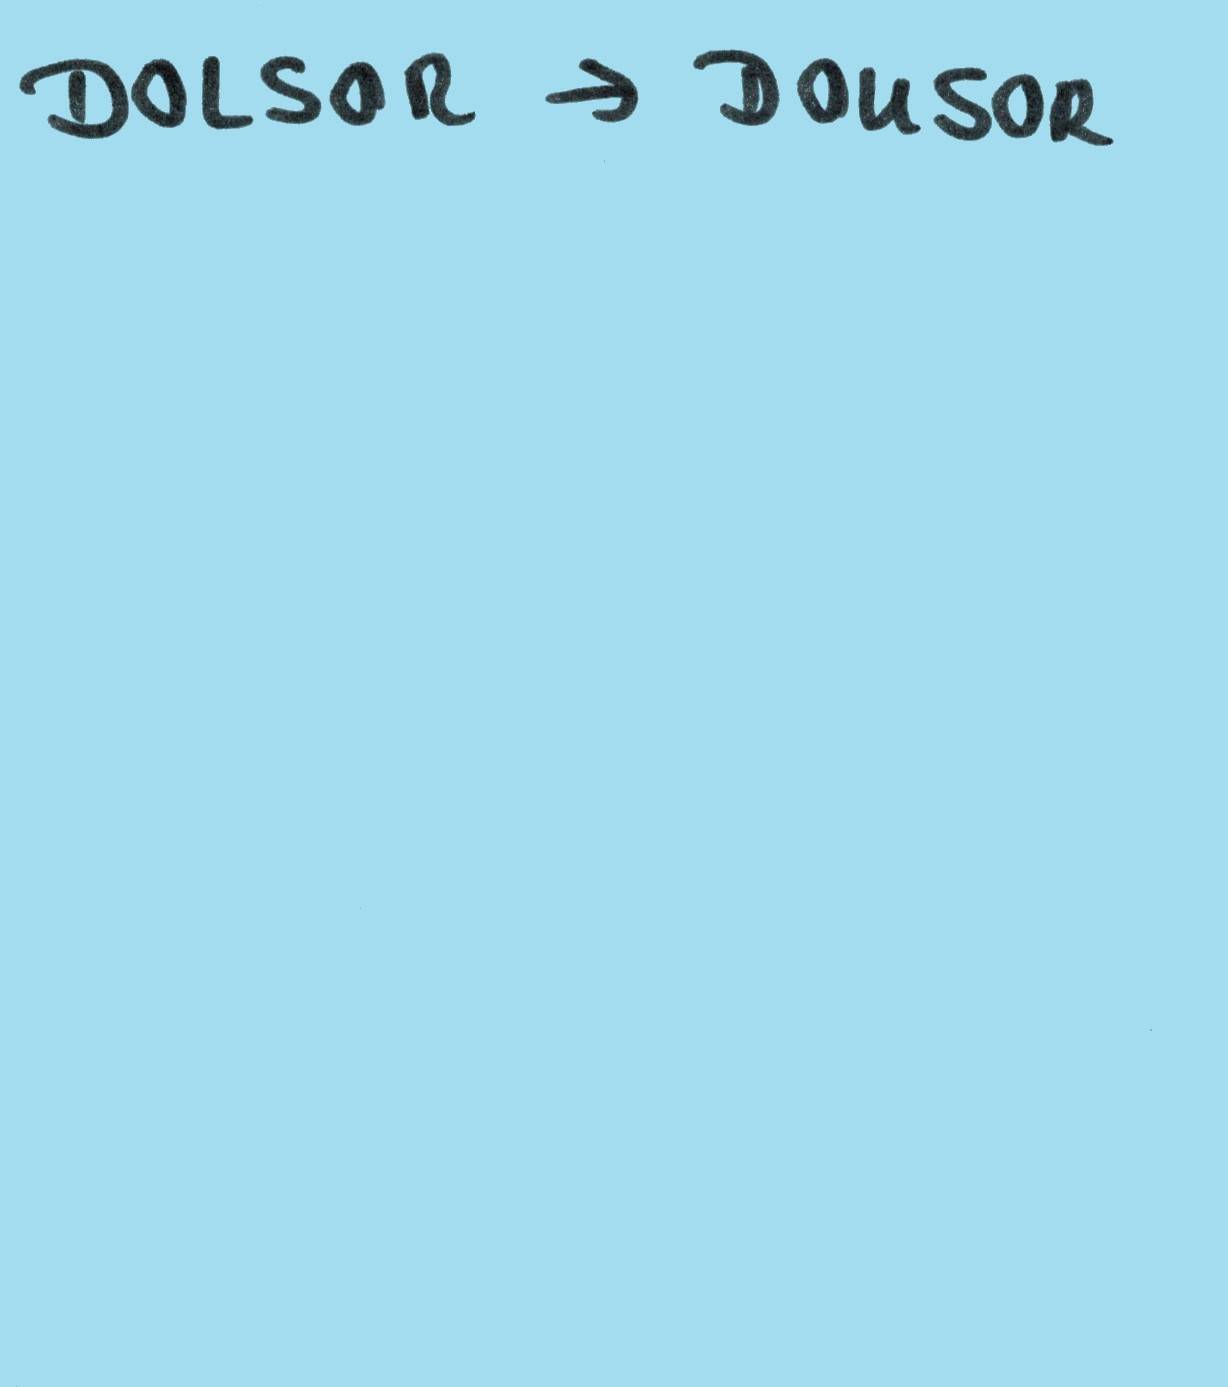 DOLSOR → DOUSOR